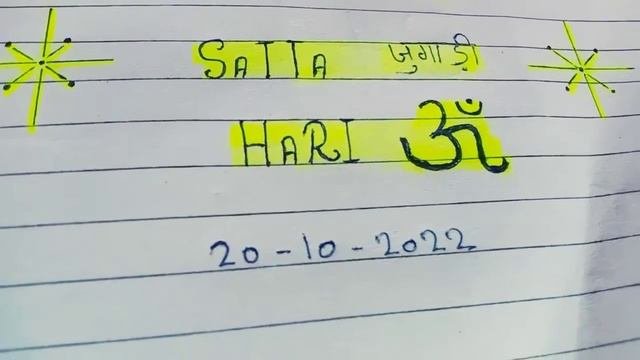 SATTA जुगाड़ी
HARI ॐ
20-10-2022